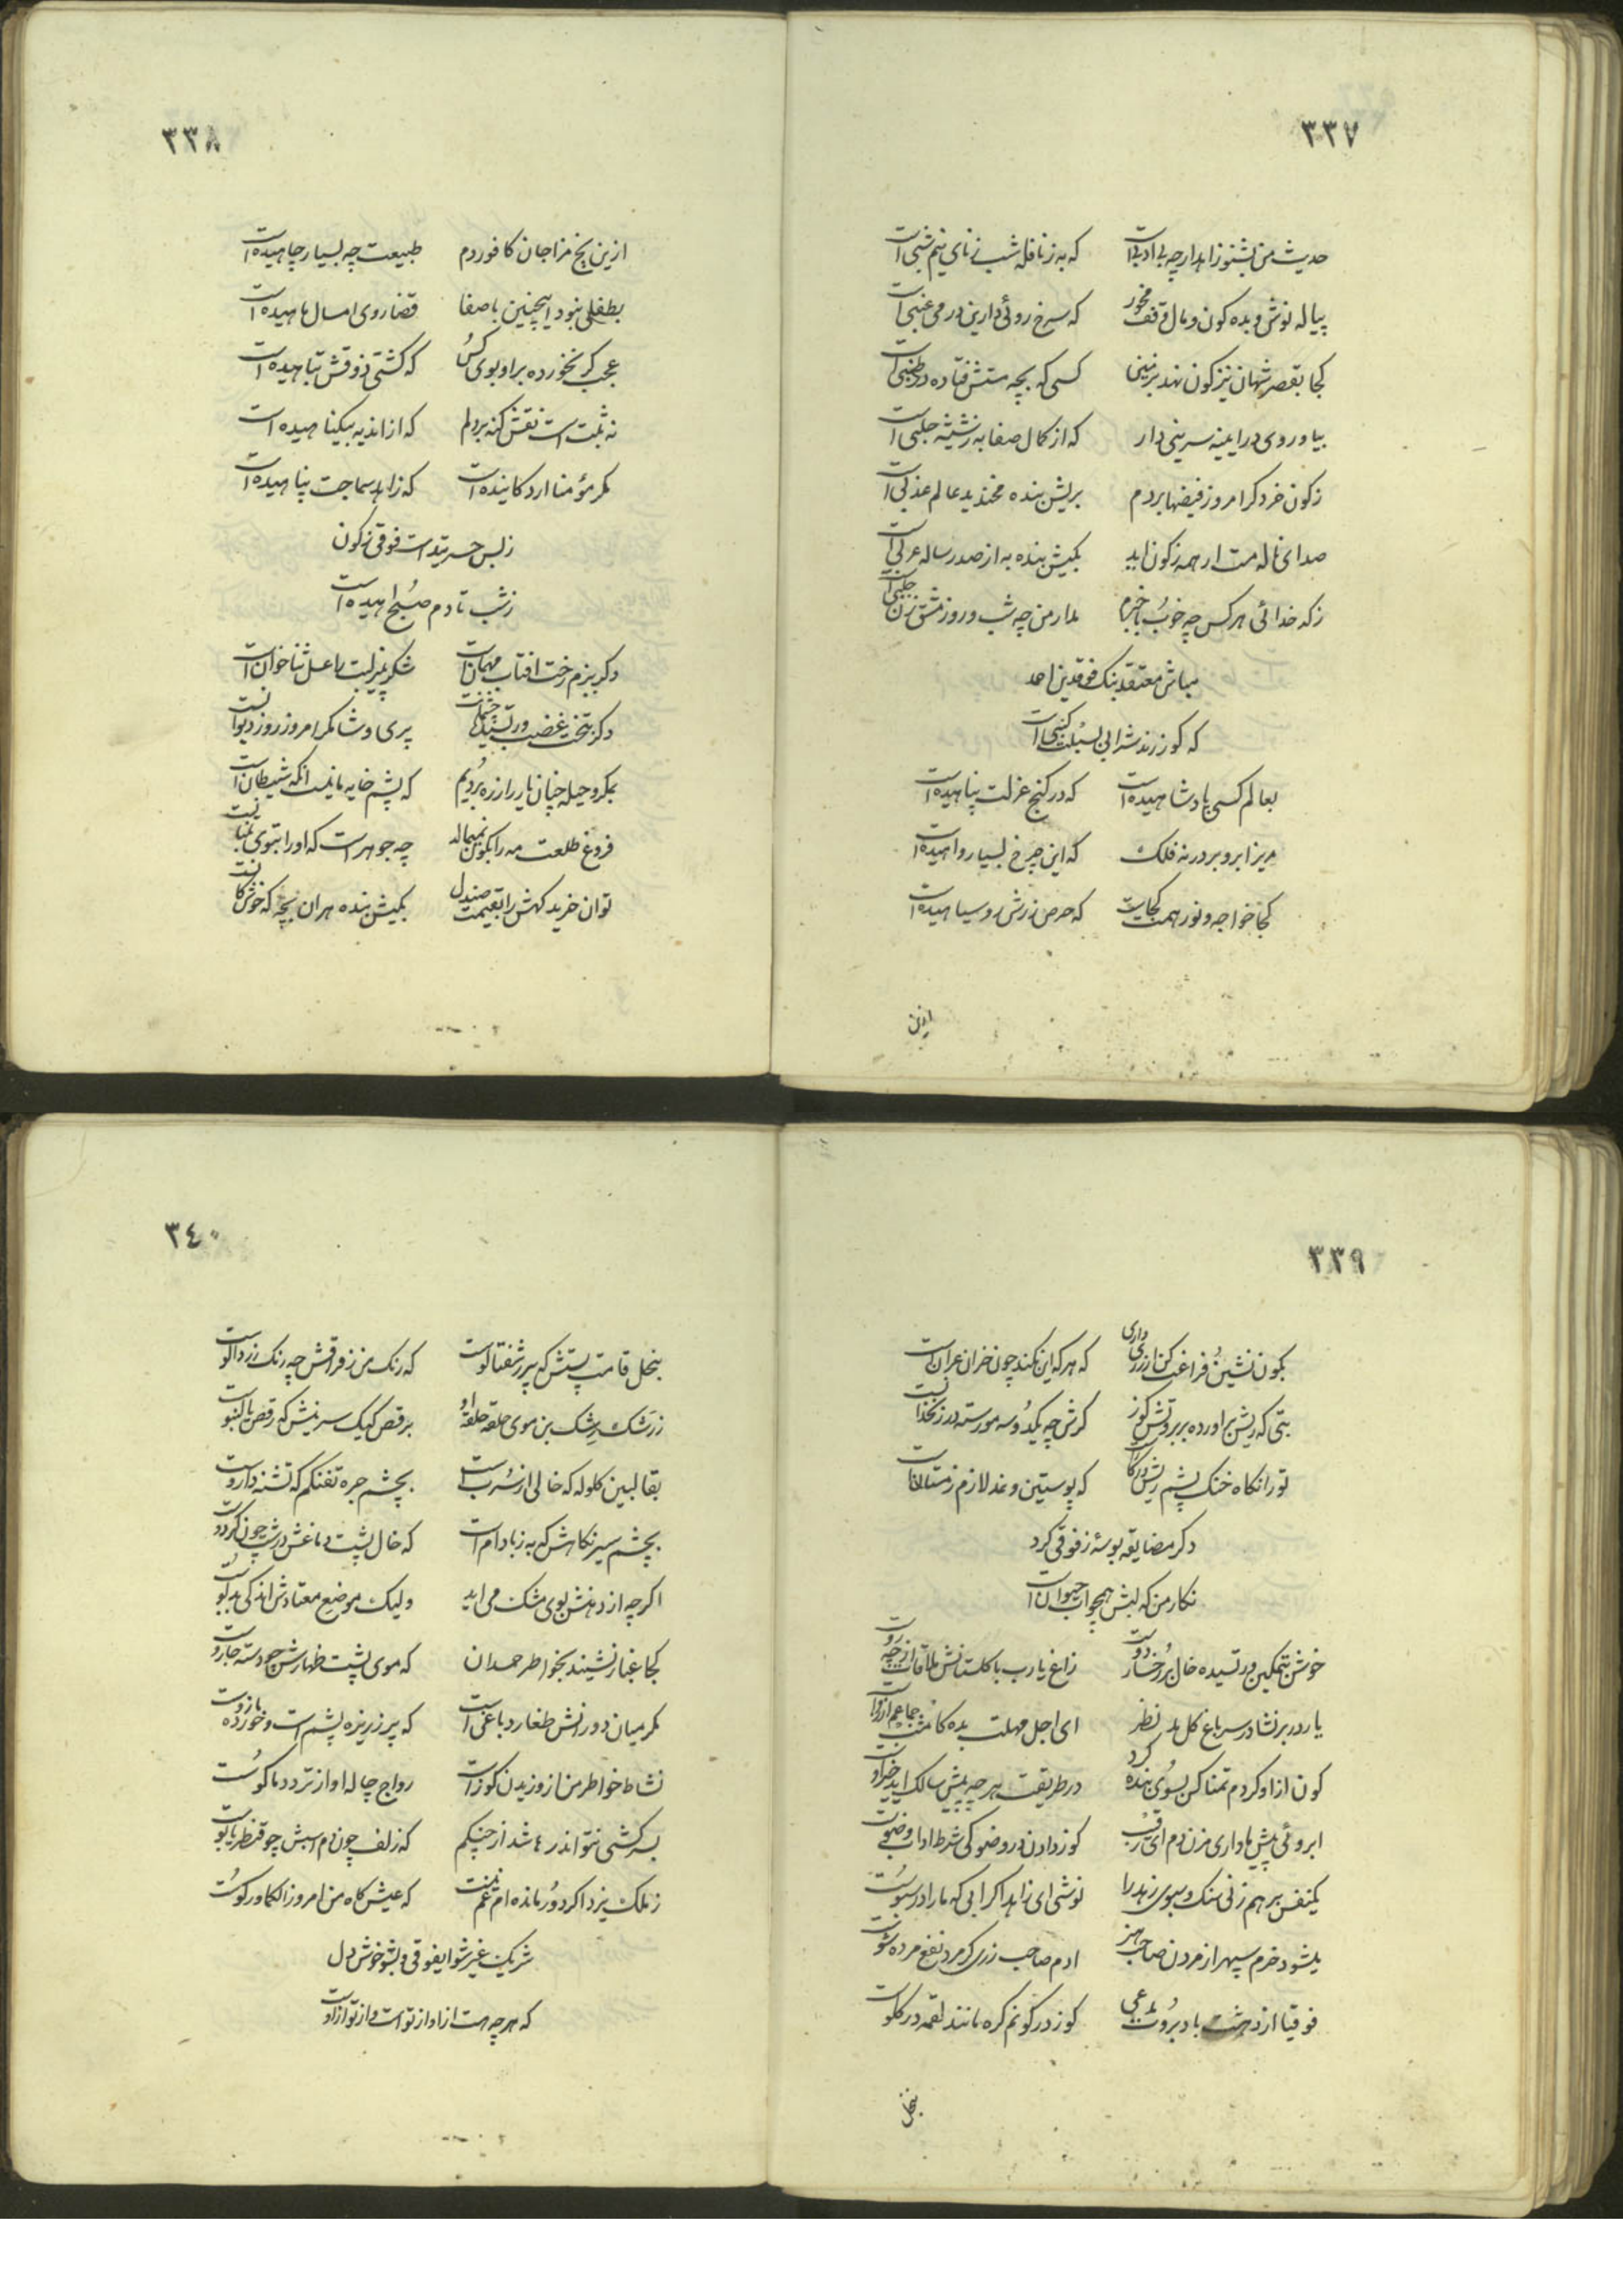 ٣٣٧
حدیث من بشنو زاهدا چه بی ادبی است که به زنافله شب زنای نیم شبی است
پیاله نوش و بده کون و مال وقف مخور که سرخ روئی دارین در می عنبی است
کجا بقصر شهان نیز کون نهد بزمین کسی که بچه مستش فتاده در طنبی است
بیا و روی در ایینه سرینی دار که از کمال صفا به زشیشه حلبی است
زکون خرد کر امروز فیضها بردم بریش بنده مخندید عالم عذبی است
صدای ناله مت ار همه زکون اید بکیش بنده به از صد رساله عربی است
زکد خدائی هر کس چه خوب باخبرم مدار من چه شب و روز مشق زن جلبی است
مباش معتقد بنک فوقدین احمد
که کوز رند شرابی بسبلت کنبی است
بعالم کسی پادشاهیده است که در کنج عزلت پناهیده است
مریز ابرو بر در نه فلک که این چرخ بسیار واهیده است
کجا خواجه و نور همت کجاست که حرص زرش روسیاهیده است
ازین
٣٣٨
ازین یخ مزاجان کافور دم طبیعت چه بسیار چاهیده است
بطفلی نبود اینچنین باصفا قضا روی امسال ماهیده است
عجب کر نخورده بر او بوی کس که کشتی ذوقش تباهیده است
نه ثبت است نقش کنه بر دلم که از اندیه بیکناهیده است
مکر مؤمنا ارد کائیده است که زاهد سماجت پناهیده است
زبس حسرتیده است فوقی زکون
زشب تا دم صبح اهیده است
دکر ببزم رخت افتاب مهمان است شکر بپیر لبت لاعسل ثناخوان است
دکر بتخت غضب ورتپیدها چشمت پری وشا مکر امروز روز دیوانست
بمکر و حیله چنان یار را زره بردیم که پشم خایه ما نیست انکه شیطان است
فروغ طلعت مه را بکون نمیماله چه جوهر است که او را بتوی تنبانست
توان خرید کهش را بقیمت صندل بکیش بنده هر ان بچه که خوش کانست
٣٣٩
بکون نشین فراغت کن ار زری داری که هر که این نکند چون خران عران است
بتی که ریش براورده بر بروتش کوز کرش چه یکدو سه مو رسته در زنخدانست
تو را نکاه خنک پشم ریش در کار است که پوستین و نمد لازم زمستانها است
دکر مضایقه بوسه زفوقی کرد
نکار من که لبش همچو اب حیوان است
خوش بتمکین ورتپیده خال بر رخسار دوست زاغ یارب با کلستانش ملاقات از چه روست
یار در بر نشاء در سر باغ کل مد نظر ای اجل مهلت بده کامشب جماعم ارزوست
کون از او کردم تمنا کس بسوی بنده کرد در طریقت هر چه پیش سالک اید خیر اوست
ابروئی پیش ما داری مزن دم ای رقیب کوز دادن در وضو کی شرط اداب وضوست
یکنفس بر هم زنی سنک و سبوی زهد را نوشی ای زاهد اکر ابی که ما را در سبوست
میشود خرم سپهر از مردن صاحب هنر ادم صاحب زری کر مرد نفع مرده شوست
فوقیا از دهشت باد بروت مدعی کوز در کونم کره مانند لقمه در کلوست
بنخل
٣٤٠
بنخل قامت پستش که پر زشفتالوست که رنک من زفراقش چه رنک زردالوست
زرشک رشک بن موی حلقه حلقه او برقص کیک سرینش که رقص با کنبوست
بقالبین کلوله که خالی از سرب است بچشم جره تفنکم که تشنه داروست
بچشم سیر نکاهش که به زبادام است که خال پشت دماغش درشت چون کردوست
اکرچه از دهنش بوی مشک می اید ولیک موضع معتادش اندکی بدبوست
کجا غبار نشیند بخواطر حمدان که موی پشت ظهارش چو دسته جاروست
مکر میان دو رانش طغار دباغی است که پر زریزه پشم است و خورده مازوست
نشاط خواطر من از وزیدن کوز است رواج چاله او از تردد ماکوست
بسرکشی نتواند رها شد از چنکم که زلف چون دم اسبش چو قنطر یابوست
زملک یزد اکر دور مانده ام غم نیست که عیش کاه من امروز الکا ورکوست
شریک غیر شو ایفوقی و بشو خوش دل
که هر چه هست از او از تو است و از تو از اوست